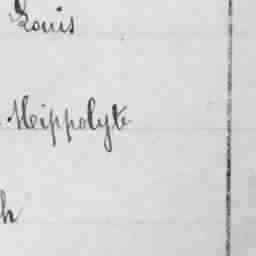 Louis
Hippolyte
h